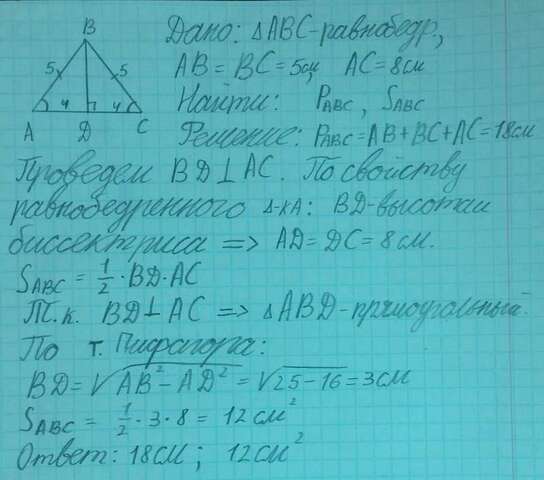 B
5 5
4 4
A D C
Дано: ΔABC-равнобедр,
AB = BC = 5см, AC = 8см
Найти: P_ABC, S_ABC
Решение: P_ABC = AB + BC + AC = 18см
Проведем BD ⊥ AC. По свойству
равнобедренного Δ-ка: BD-высота и
биссектриса => AD = DC = 8см.
S_ABC = 1/2 · BD · AC
Т.к. BD ⊥ AC => ΔABD-прямоугольный.
По т. Пифагора:
BD = √(AB² - AD²) = √(25 - 16) = 3см
S_ABC = 1/2 · 3 · 8 = 12см²
Ответ: 18см; 12см²